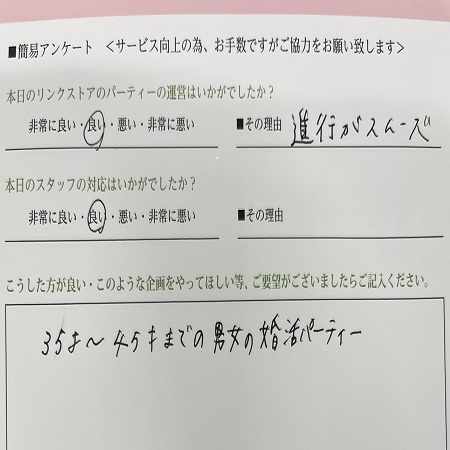 ■簡易アンケート ＜サービス向上の為、お手数ですがご協力をお願い致します＞
本日のリンクストアのパーティーの運営はいかがでしたか？
非常に良い・良い・悪い・非常に悪い ■その理由 進行がスムーズ
本日のスタッフの対応はいかがでしたか？
非常に良い・良い・悪い・非常に悪い ■その理由
こうした方が良い・このような企画をやってほしい等、ご要望がございましたらご記入ください。
35才～45才までの男女の婚活パーティー